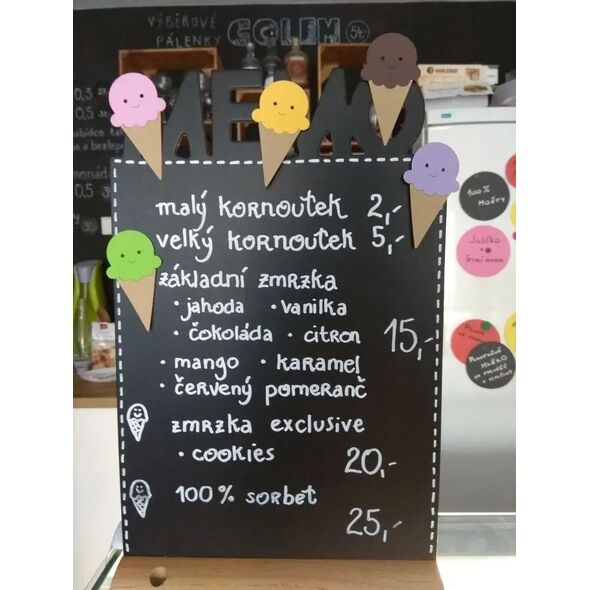 VÝBĚROVÉ
PÁLENKY GOLEM 54,-
MEMO
0,3
0,5
0,5
malý kornoutek 2,-
velký kornoutek 5,-
základní zmrzka
• jahoda • vanilka
• čokoláda • citron 15,-
• mango • karamel
• červený pomeranč
zmrzka exclusive
• cookies 20,-
100% sorbet
25,-
100%
MOŠTY
Jablko
+